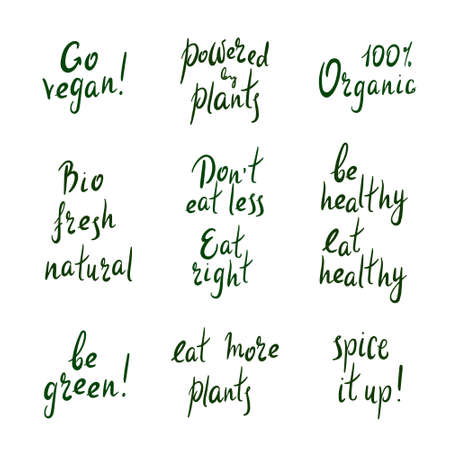 Go
vegan!
powered
by
plants
100%
Organic
Bio
fresh
natural
Don't
eat less
Eat
right
be
healthy
eat
healthy
be
green!
eat more
plants
spice
it up!